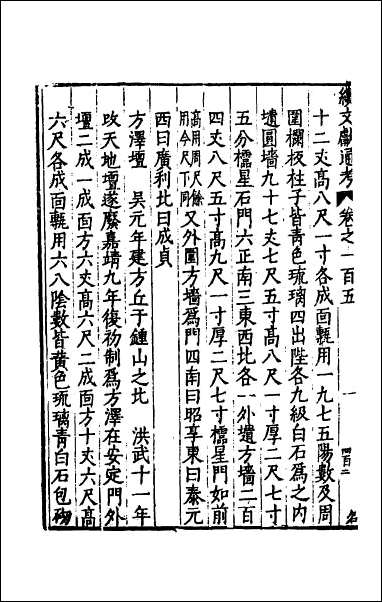 續文獻通考 卷之一百五 一 四百二
十二丈高八尺一寸各成面甎用一九七五陽數及周
圍欄板柱子皆青色琉璃四出陛各九級白石爲之内
壝圓墻九十七丈七尺五寸高八尺一寸厚二尺七寸
五分櫺星石門六正南三東西北各一外壝方墻二百
四丈八尺五寸高九尺一寸厚二尺七寸櫺星門如前
高用周尺餘用今尺下同又外圍方墻爲門四南曰昭享東曰泰元
西曰廣利北曰成貞
方澤壇 吴元年建方丘于鍾山之北 洪武十一年
改天地壇遂廢嘉靖九年復初制爲方澤在安定門外
壇二成一成面方六丈高六尺二成面方十丈六尺高
六尺各成面甎用六八陰數皆黄色琉璃青白石包砌